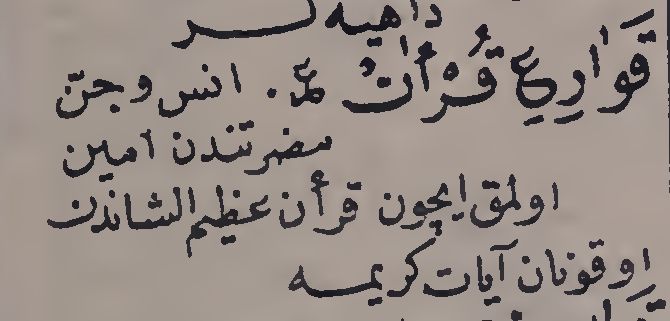 داهيه لر
قَوَارِعِ قُرْأٰن عم. انس و جنّ
مضرتندن امين
اولمق ايچون قرأن عظيم الشاندن
اوقونان آيات كريمه